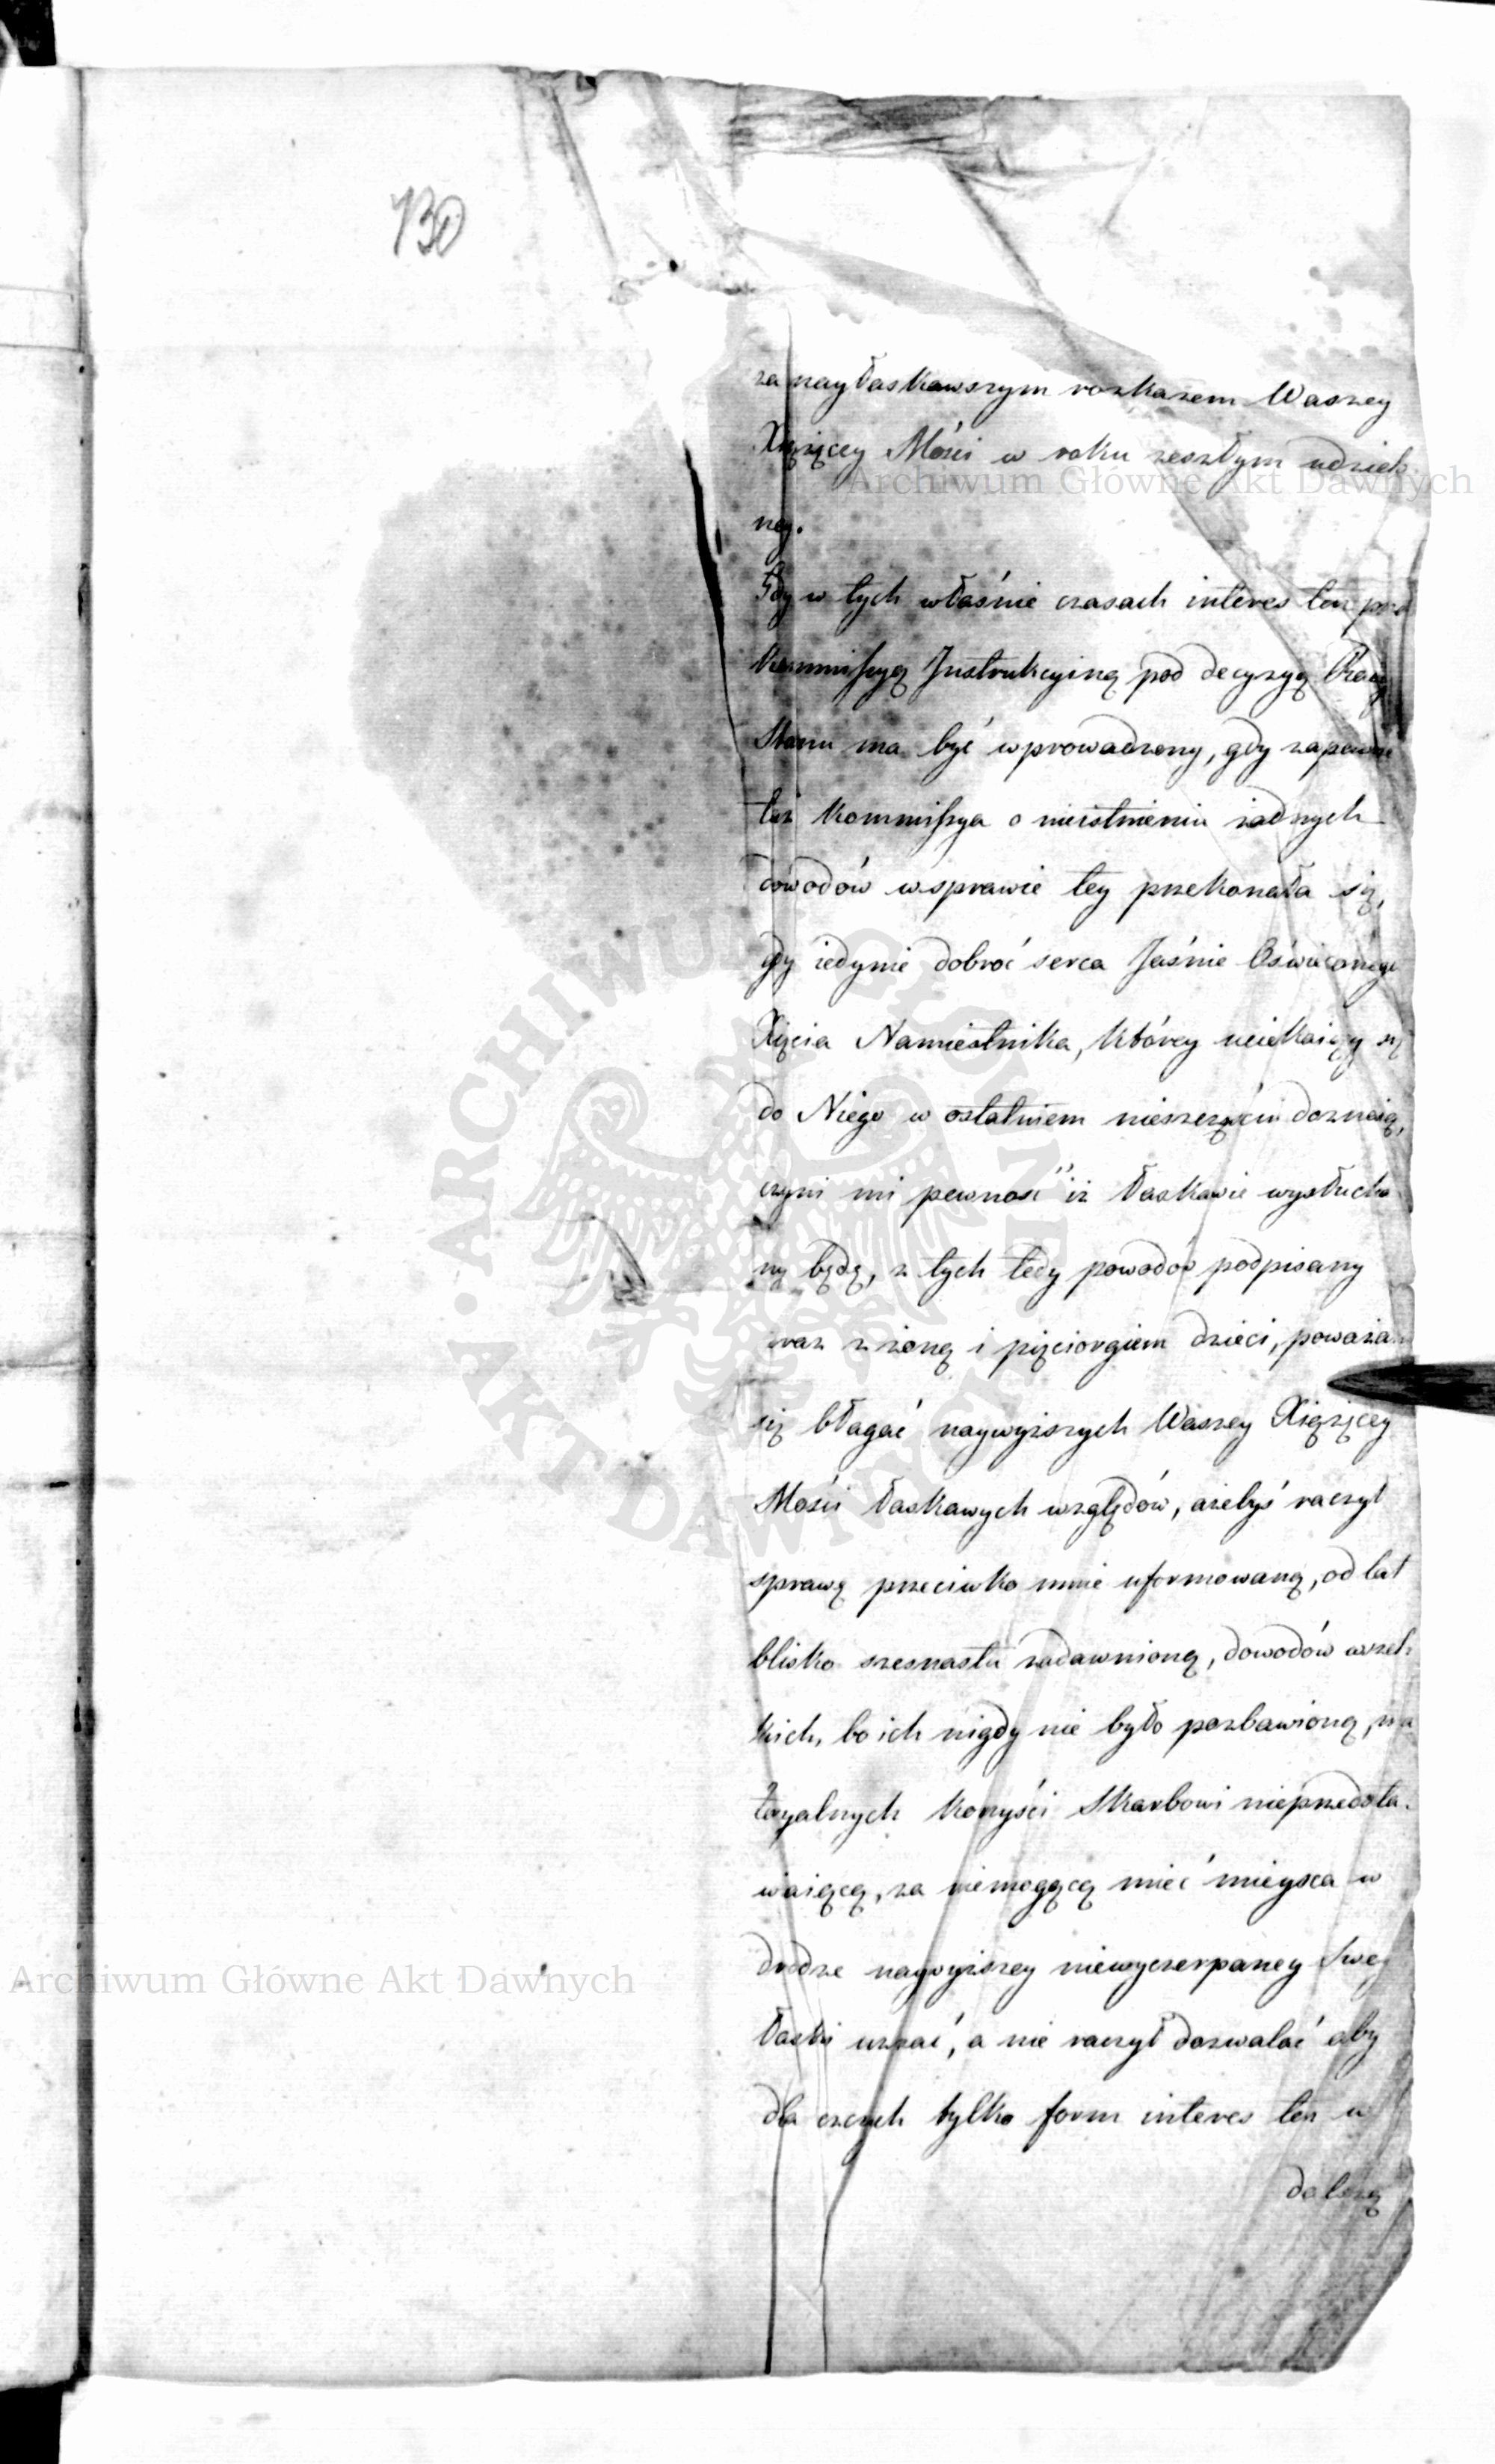 130
za nayłaskawszym rozkazem Waszey
Xiążęcey Mości w roku zeszłym udzielo
ney.
Gdy w tych właśnie czasach interes ten przez
Kommissyą Instrukcyiną pod decyzyą Rady
Stanu ma być wprowadzony, gdy zapewne
taż Kommissya o nieistnieniu żadnych
dowodów w sprawie tey przekonała się,
gdy iedynie dobroć serca Jaśnie Oświeconego
Xięcia Namiestnika, którey uciekaiący się
do Niego w ostatniem nieszczęściu doznaią,
czyni mi pewność iż łaskawie wysłucha
ny będę, z tych tedy powodów podpisany
wraz z żoną i pięciorgiem dzieci, poważa
się błagać naywyższych Waszey Xiążęcey
Mości łaskawych względów, ażebyś raczył
sprawę przeciwko mnie uformowaną, od lat
blisko szesnastu zadawnioną, dowodów wszel-
kich, bo ich nigdy nie było pozbawioną, ma
teryalnych korzyści Skarbowi nieprzedsta-
wiaiącą, za niemogącą mieć mieysca w
drodze naywyższey niewyczerpaney Swey
łaski uznać, a nie raczył dozwalać aby
dla czczych tylko form interes ten w
dalszą
Archiwum Główne Akt Dawnych
Archiwum Główne Akt Dawnych
• ARCHIWUM GŁÓWNE • AKT DAWNYCH